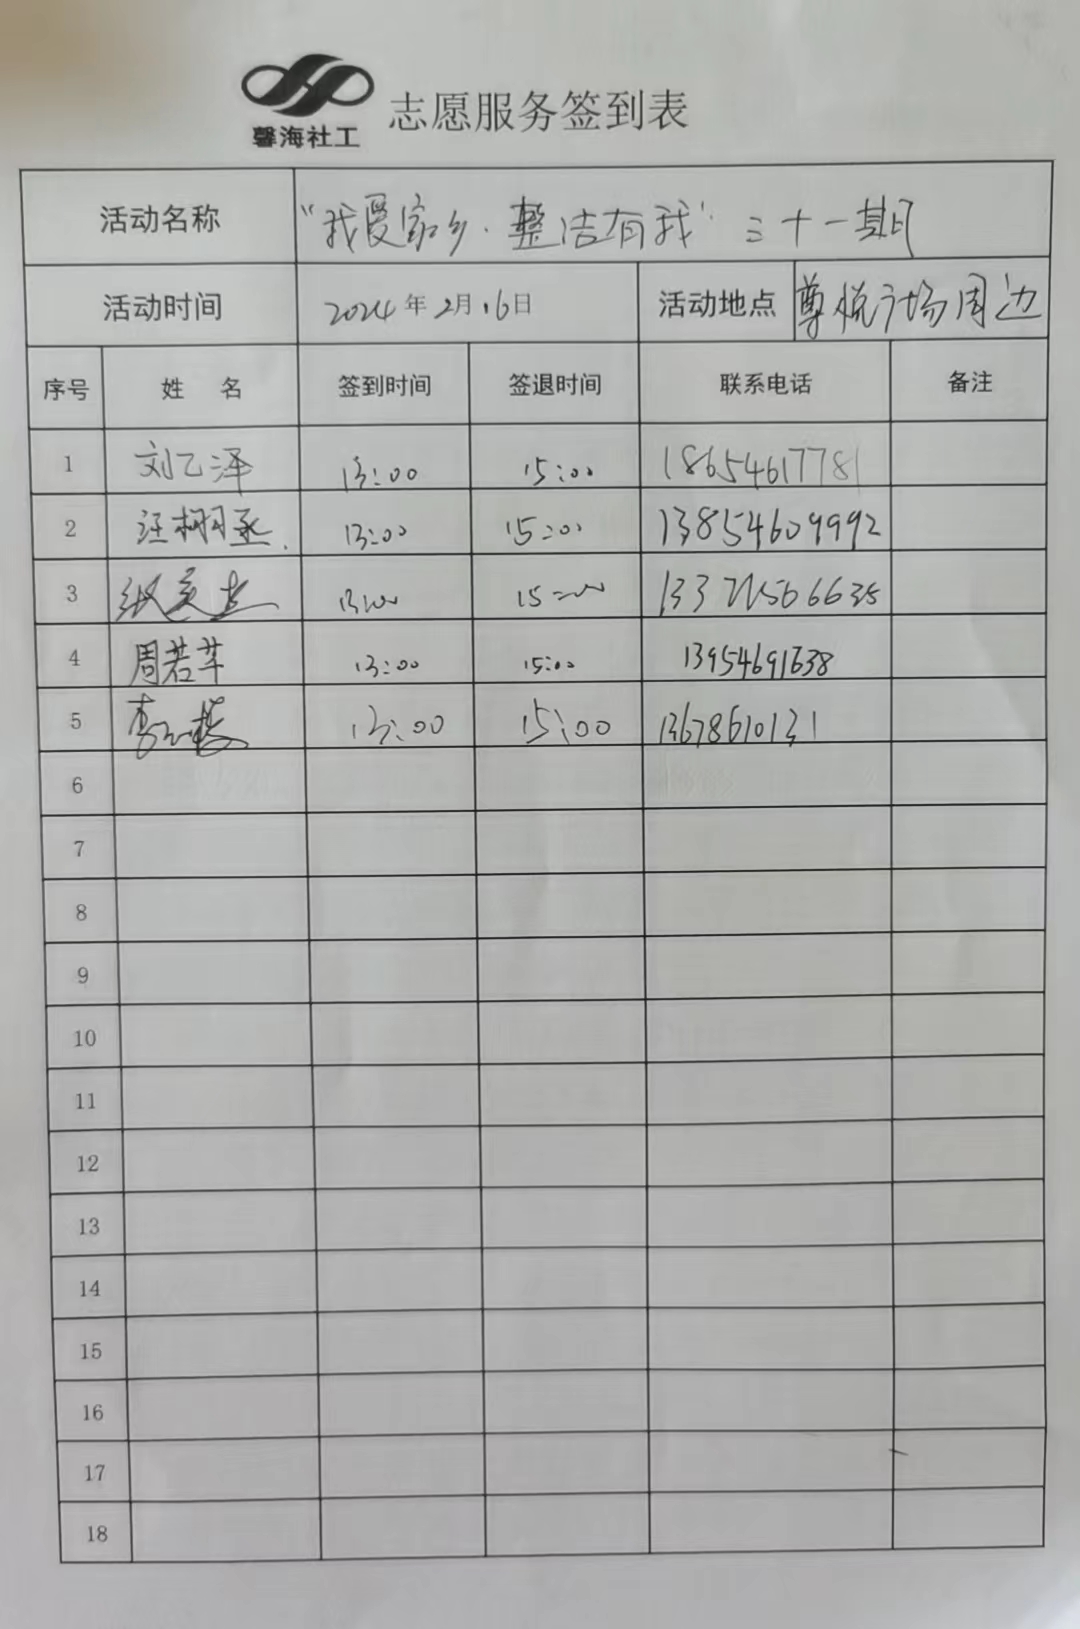 馨海社工
志愿服务签到表
活动名称 “我爱家乡·整洁有我” 三十一期
活动时间 2024年2月16日 活动地点 尊悦广场周边
序号 姓 名 签到时间 签退时间 联系电话 备注
1 刘乙泽 13:00 15:00 18654617781
2 汪栩丞 13:00 15:00 13854609992
3 13:00 15:00
4 周若苹 13:00 15:00 13954691638
5 李 13:00 15:00 13678610131
6
7
8
9
10
11
12
13
14
15
16
17
18